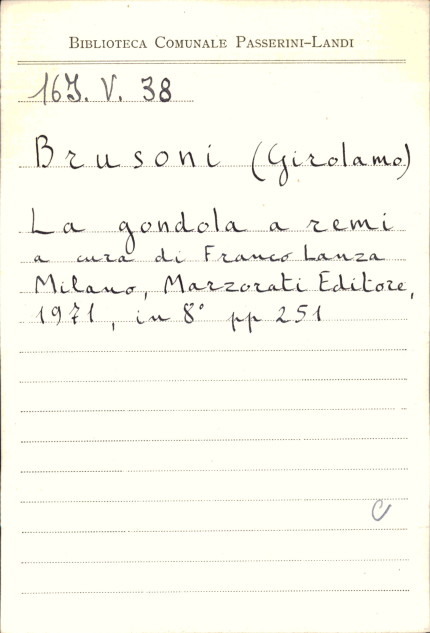 BIBLIOTECA COMUNALE PASSERINI-LANDI
16J. V. 38
Brusoni (Girolamo)
La gondola a remi
a cura di Franco Lanza
Milano, Marzorati Editore,
1971, in 8° pp 251
C